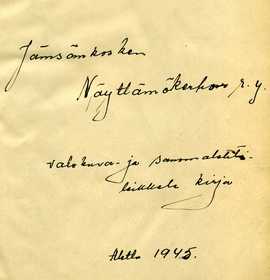 Jämsänkosken
Näyttämökerho r.y.
valokuva- ja sanomalehti-
leikkele kirja
1945.